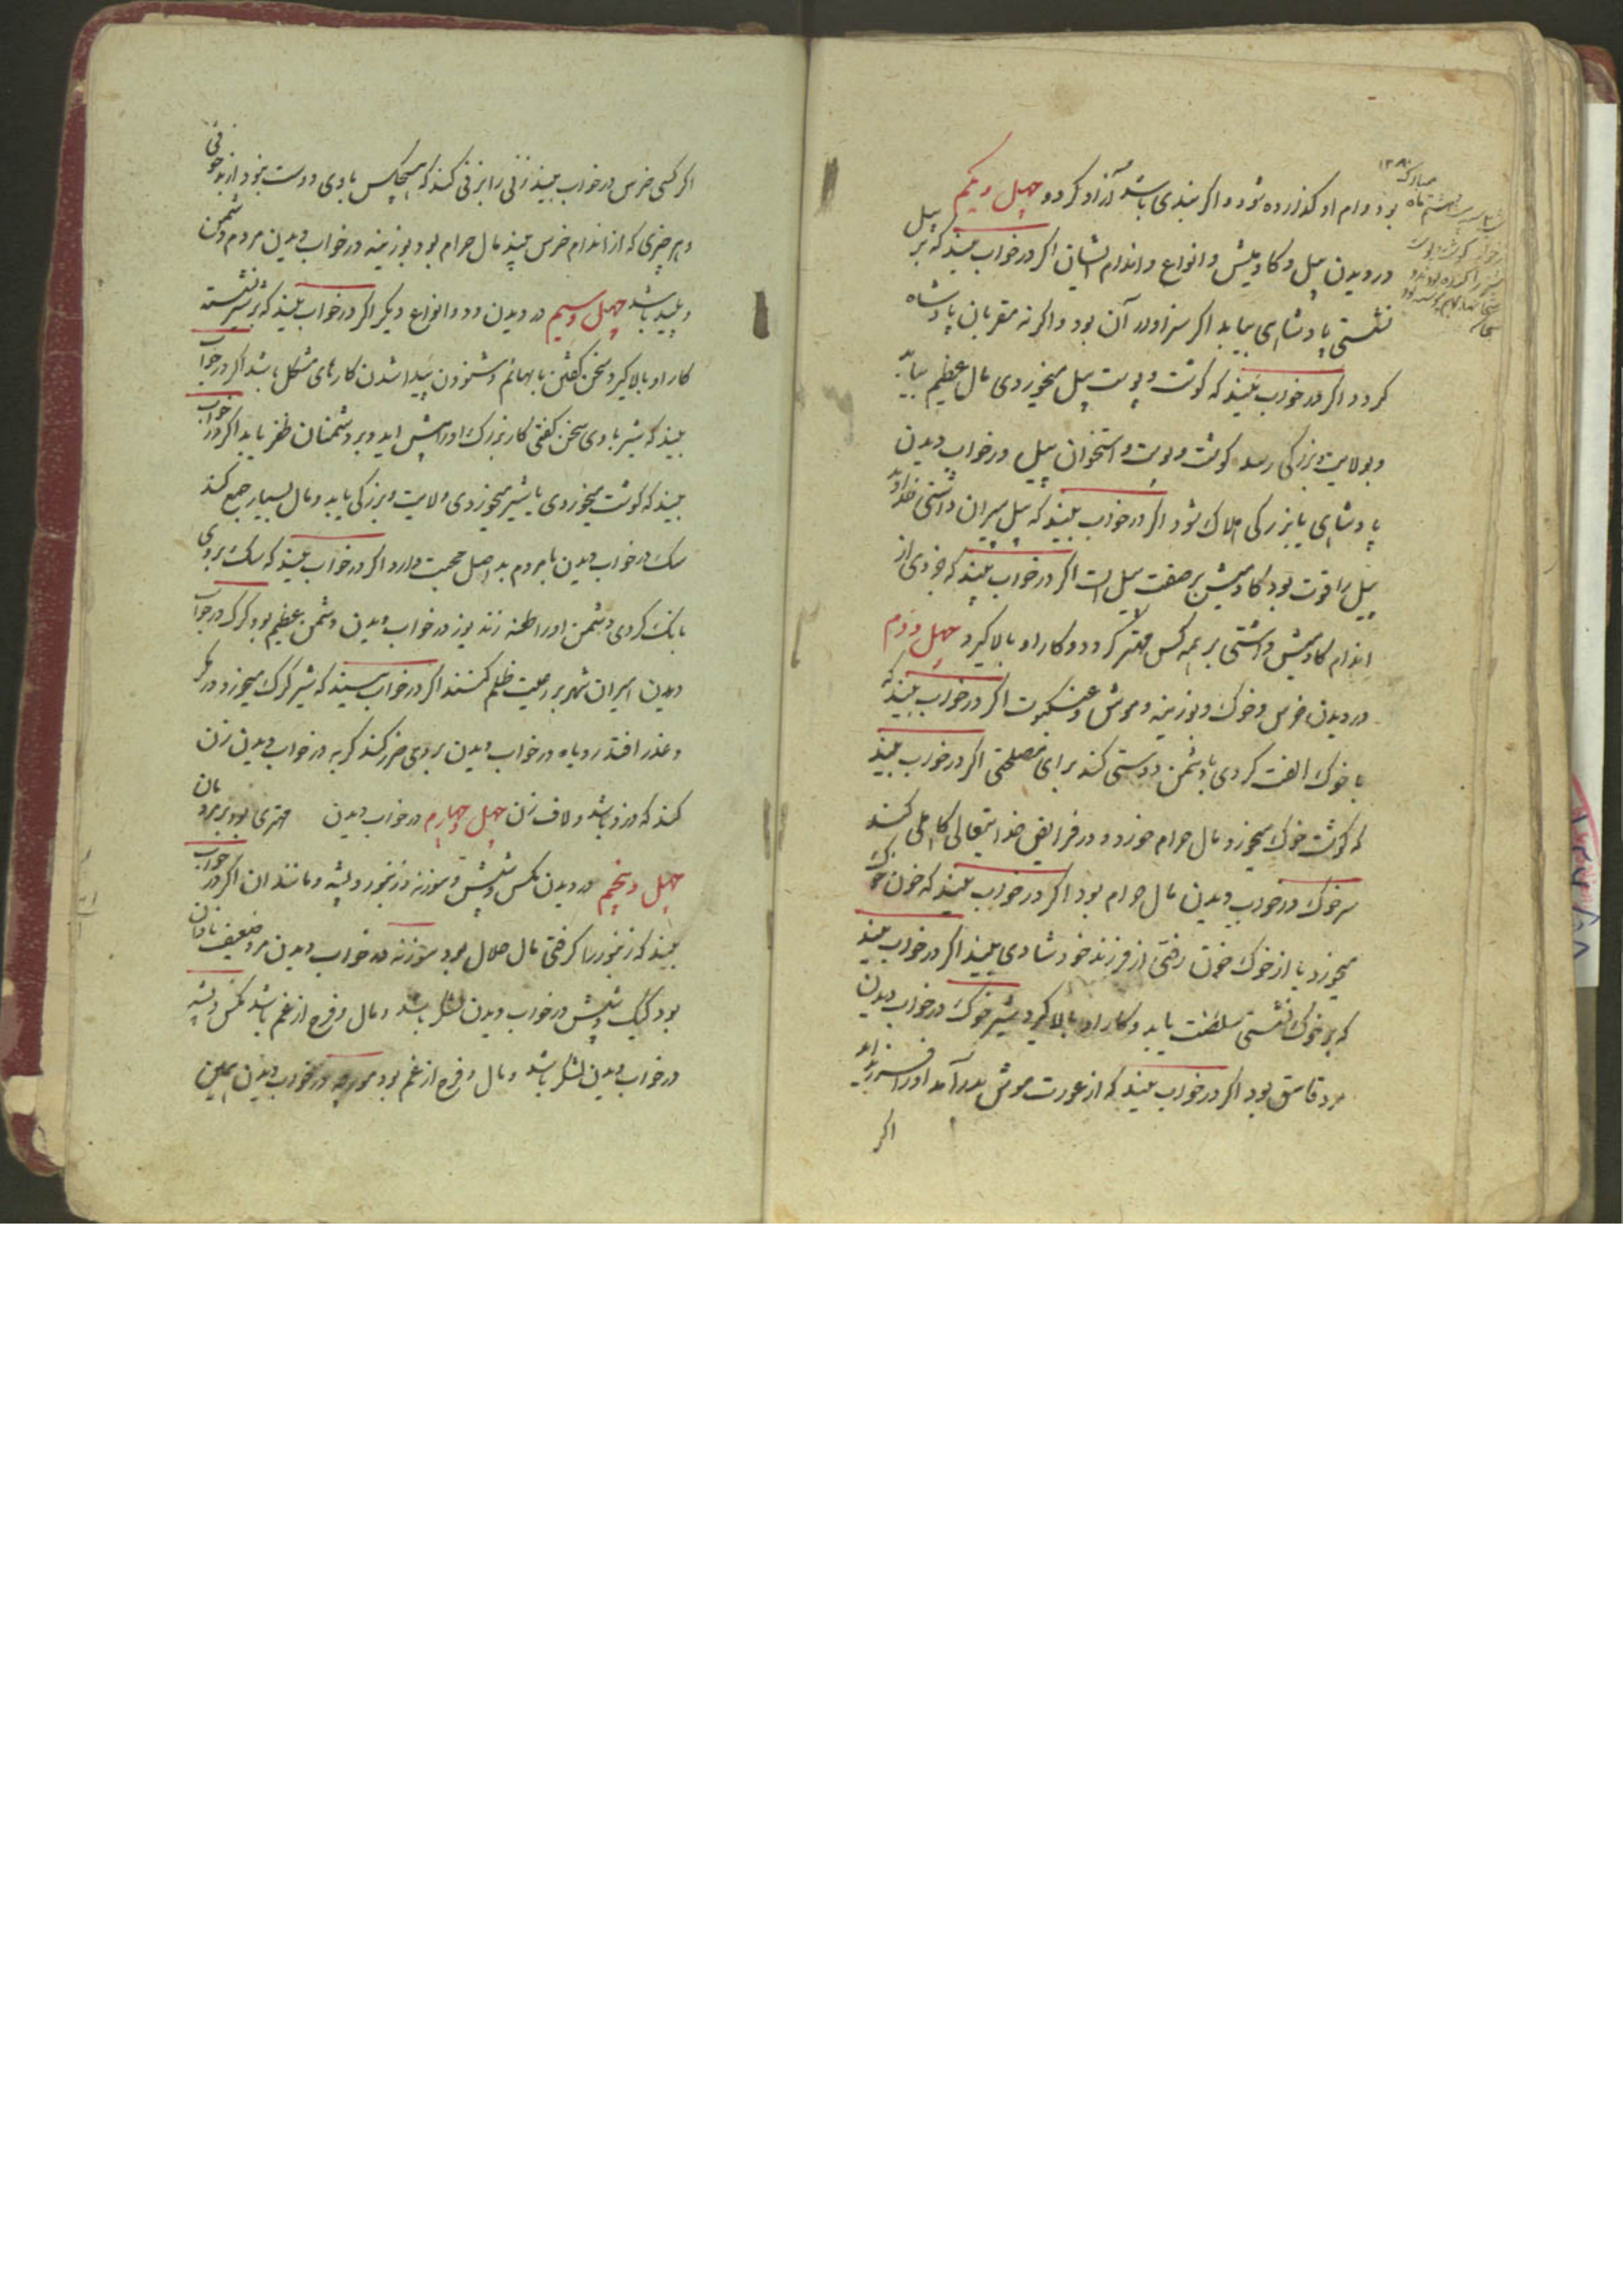 بود وام او گذارده شود و اگر بندی باشد آزاد گردد چهل و یکم
در دیدن پیل و گاومیش و انواع و اندام ایشان اگر در خواب بیند که بر پیل
نشستی پادشاهی بیابد اگر سزاوار آن بود و اگر نه مقربان پادشاه
گردد اگر در خواب بیند که گوشت و پوست پیل میخوردی مال عظیم بیابد
و بولایت و بزرگی رسد گوشت و پوست و استخوان پیل در خواب دیدن
پادشاهی یا بزرگی هلاک شود اگر در خواب بیند که پیل پیران داشتی خداوند
پیل را قوت بود گاومیش بر صفت پیل است اگر در خواب بیند که جزوی از
اندام گاومیش داشتی بر همه کس مهتر گردد و کار او بالا گیرد چهل و دوم
در دیدن خرس و خوک و بوزینه و موش و عنکبوت اگر در خواب بیند که
با خوک الفت کردی با دشمن دوستی کند برای مصلحتی اگر در خواب بیند
که گوشت خوک میخورد مال حرام خورد و در فرایض خدایتعالی کاهلی کند
سر خوک در خواب دیدن مال حرام بود اگر در خواب بیند که خون خوک
میخورد یا از خوک خون رفتی از فرزند خود شادی بیند اگر در خواب بیند
که بر خوک نشستی سلطنت یابد و کار او بالا گیرد شیر خوک در خواب دیدن
مرد فاسق بود اگر در خواب بیند که از عورت موش بدر آمد او را فرزند آید
اگر
اگر کسی خرس در خواب بیند زنی را بزنی کند که هیچکس با وی دوست نبود از بدخوئی
و هر چیزی که از اندام خرس بیند مال حرام بود بوزینه در خواب دیدن مردم دشمن
و پلید باشد چهل و سیم در دیدن دد و انواع دیگر اگر در خواب بیند که بر شیر نشسته
کار او بالا گیرد سخن گفتن با بهائم و شنودن پیدا شدن کارهای مشکل باشد اگر در خواب
بیند که شیر با وی سخن گفتی کار بزرگ او را پیش اید و بر دشمنان ظفر یابد اگر در خواب
بیند که گوشت میخوردی یا شیر میخوردی ولایت و بزرگی یابد و مال بسیار جمع کند
سک در خواب دیدن با مردم بد اصل صحبت دارد اگر در خواب بیند که سک بر وی
بانک کردی دشمن او را طعنه زند یوز در خواب دیدن دشمن عظیم بود گرگ در خواب
دیدن امیران شهر بر رعیت ظلم کنند اگر در خواب بیند که شیر گرگ میخورد در مکر
و غدر افتد روباه در خواب دیدن بر وی ضرر کند گربه در خواب دیدن زن
کند که دزد باشد و لاف زن چهل و چهارم در خواب دیدن مهتری بود بر مردمان
چهل و پنجم در دیدن مکس و شپش و مورنه و زنبور و پشه و مانند ان اگر در خواب
بیند که زنبور را گرفتی مال حلال بود مورنه در خواب دیدن مرد ضعیف نادان
بود کیک و شپش در خواب دیدن لشکر باشد و مال و فرج از غم باشد مکس و پشه
در خواب دیدن لشکر باشد و مال و فرج از غم بود مورچه در خواب دیدن همین